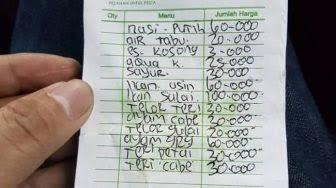 PESANAN UNTUK MEJA
Qty Menu Jumlah Harga
nasi. Putih 60-000
air tabu. 20-000
es. kosong 2-000
aqua k. 25-000
sayur. 20-000
ikan asin 60-000
ikan gulai. 100-000
Telor Teri 20-000
ayam cabe 30-000
Telor gulai 20-000
ayam 30-000
Teri petai 30-000
Teri cabe 30-000